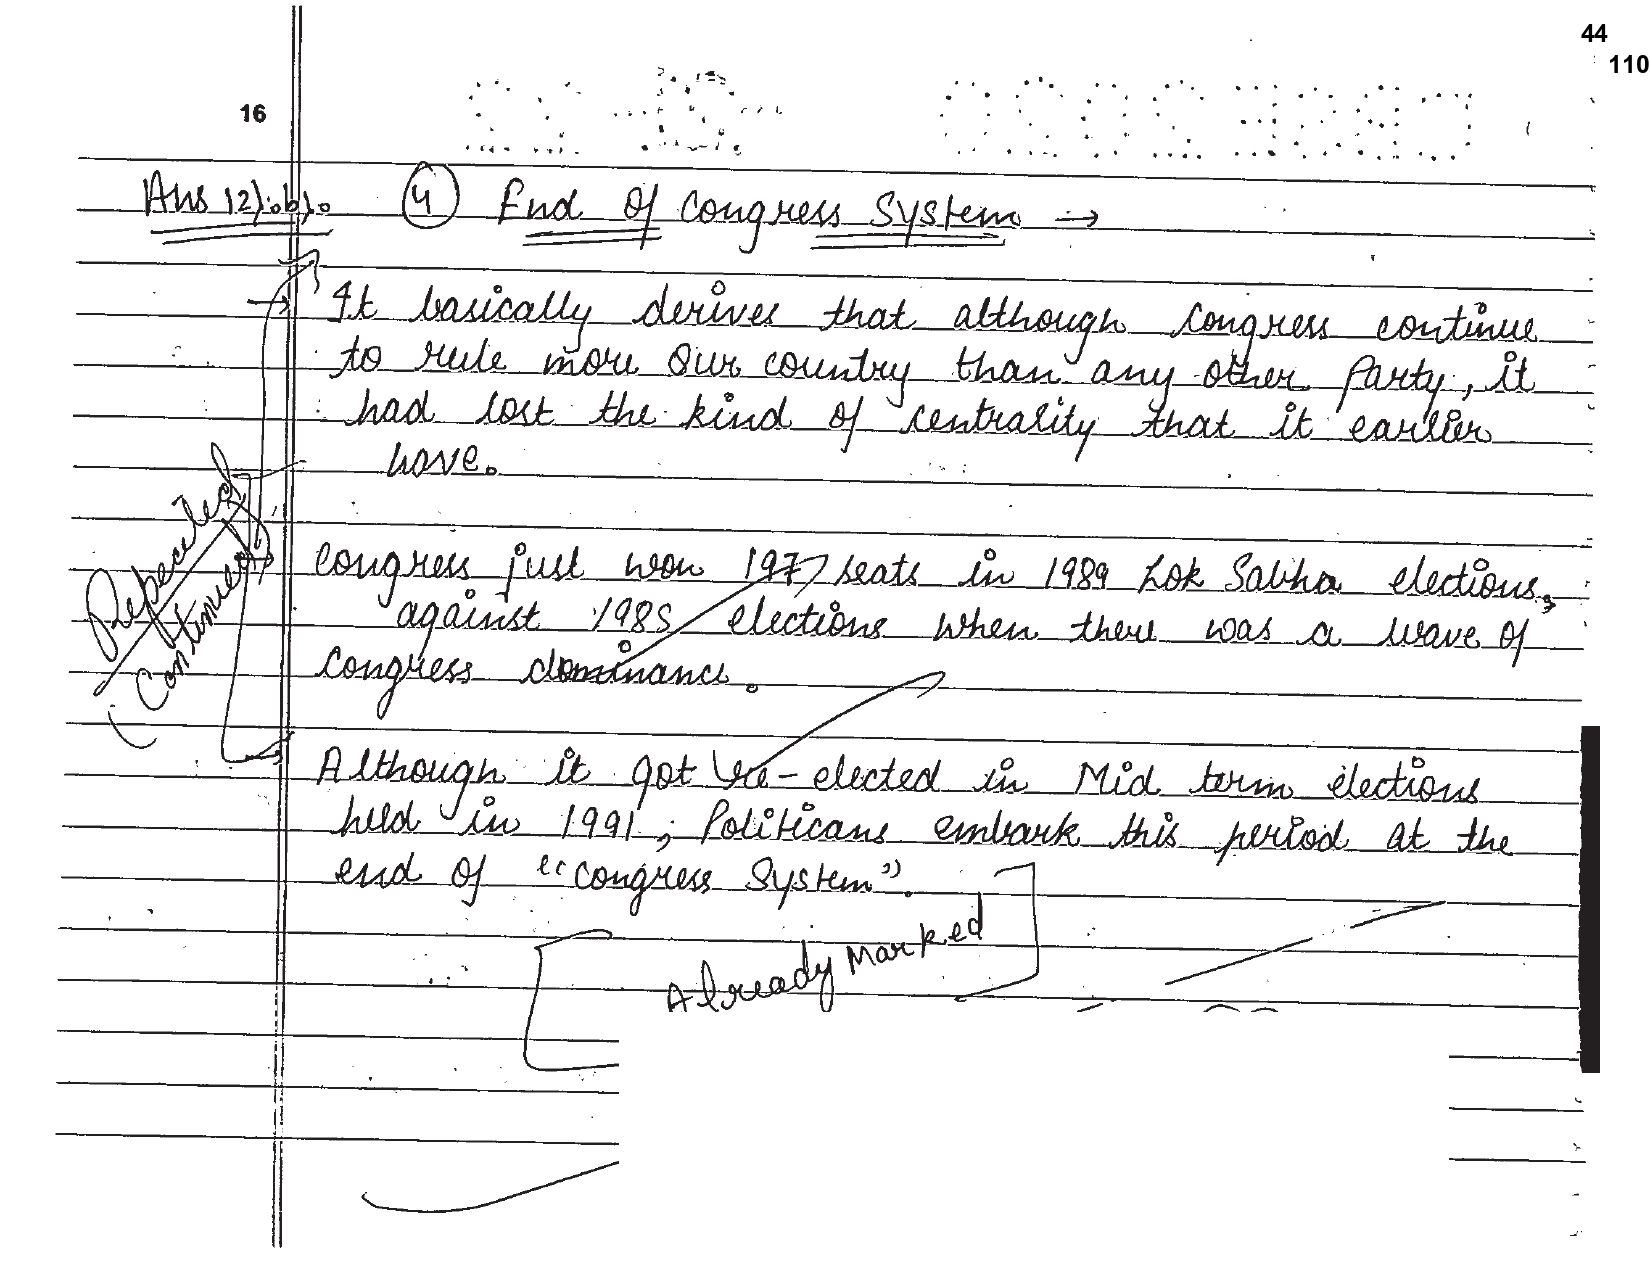 44
110
16
CBSE 2020
Ans 12).b). (4) End of Congress System →
→ It basically derives that although Congress continue
to rule more our country than any other Party, it
had lost the kind of centrality that it earlier
have.
Repeated
(Continued)
Congress just won 197 seats in 1989 Lok Sabha elections,
against 1985 elections when there was a wave of
Congress dominance.
Although it got re-elected in Mid term elections
held in 1991, Politicans embark this period at the
end of "Congress System".
Already Marked